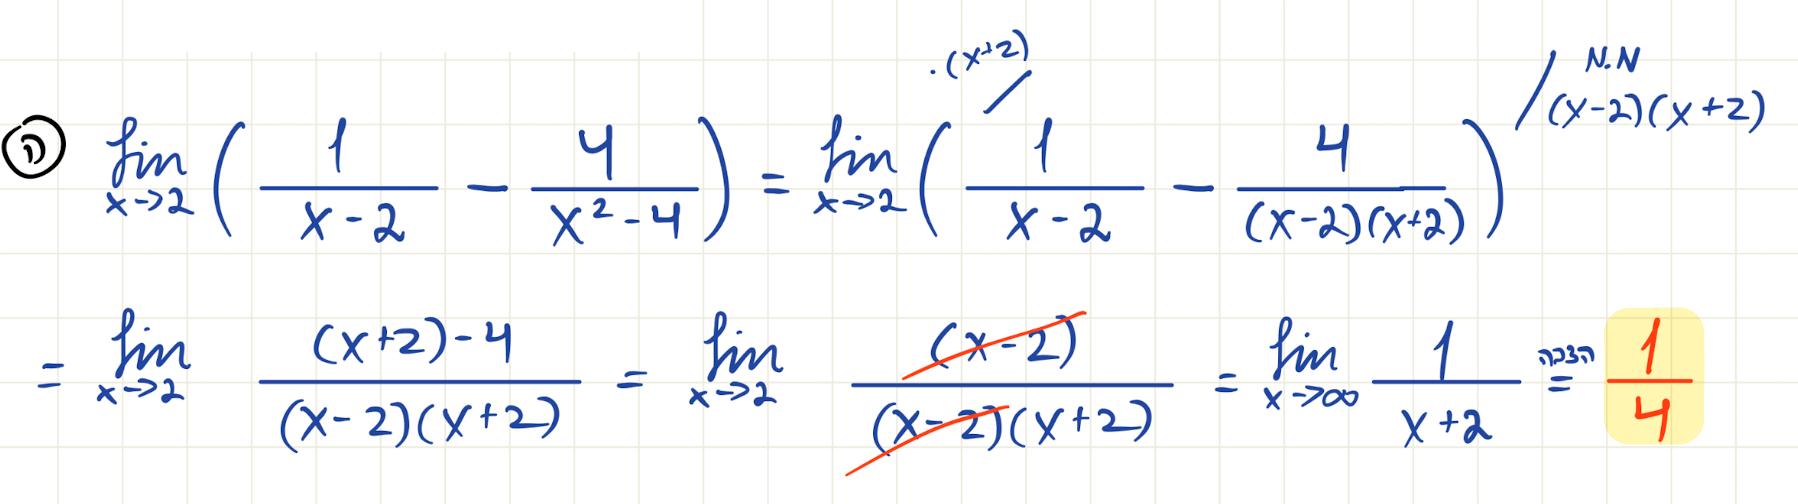 ·(x+2) מ.מ
(ה) lim x→2 ( 1/(x-2) - 4/(x²-4) ) = lim x→2 ( 1/(x-2) - 4/((x-2)(x+2)) ) / (x-2)(x+2)
= lim x→2 ((x+2)-4)/((x-2)(x+2)) = lim x→2 (x-2)/((x-2)(x+2)) = lim x→∞ 1/(x+2) הצבה = 1/4